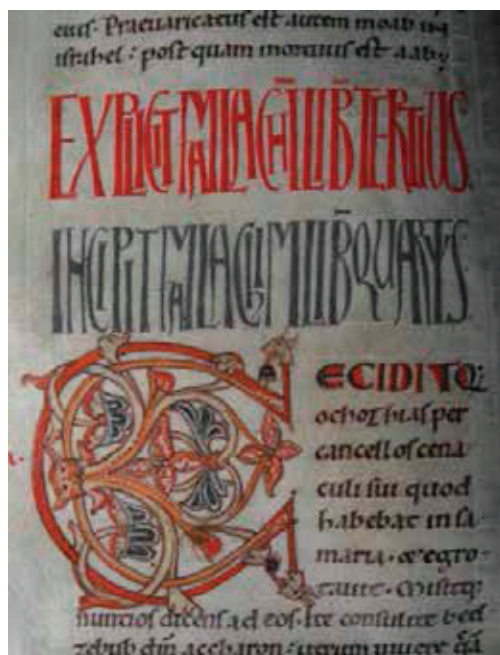 eius. Praeuaricatus est autem moab in
israhel : post quam mortuus est
EXPLICIT MALACHĪ LIB̄ TERTIUS.
INCIPIT MALACHIM LIB̄ QUARTUS.
CECIDITQ;
ochozias per
cancellos cena
culi sui quod
habebat in sa
maria. & egro
tauit. Misitq;
nuncios dicens ad eos. Ite consulite beel
zebub dm̄ accharon : utrum uiuere